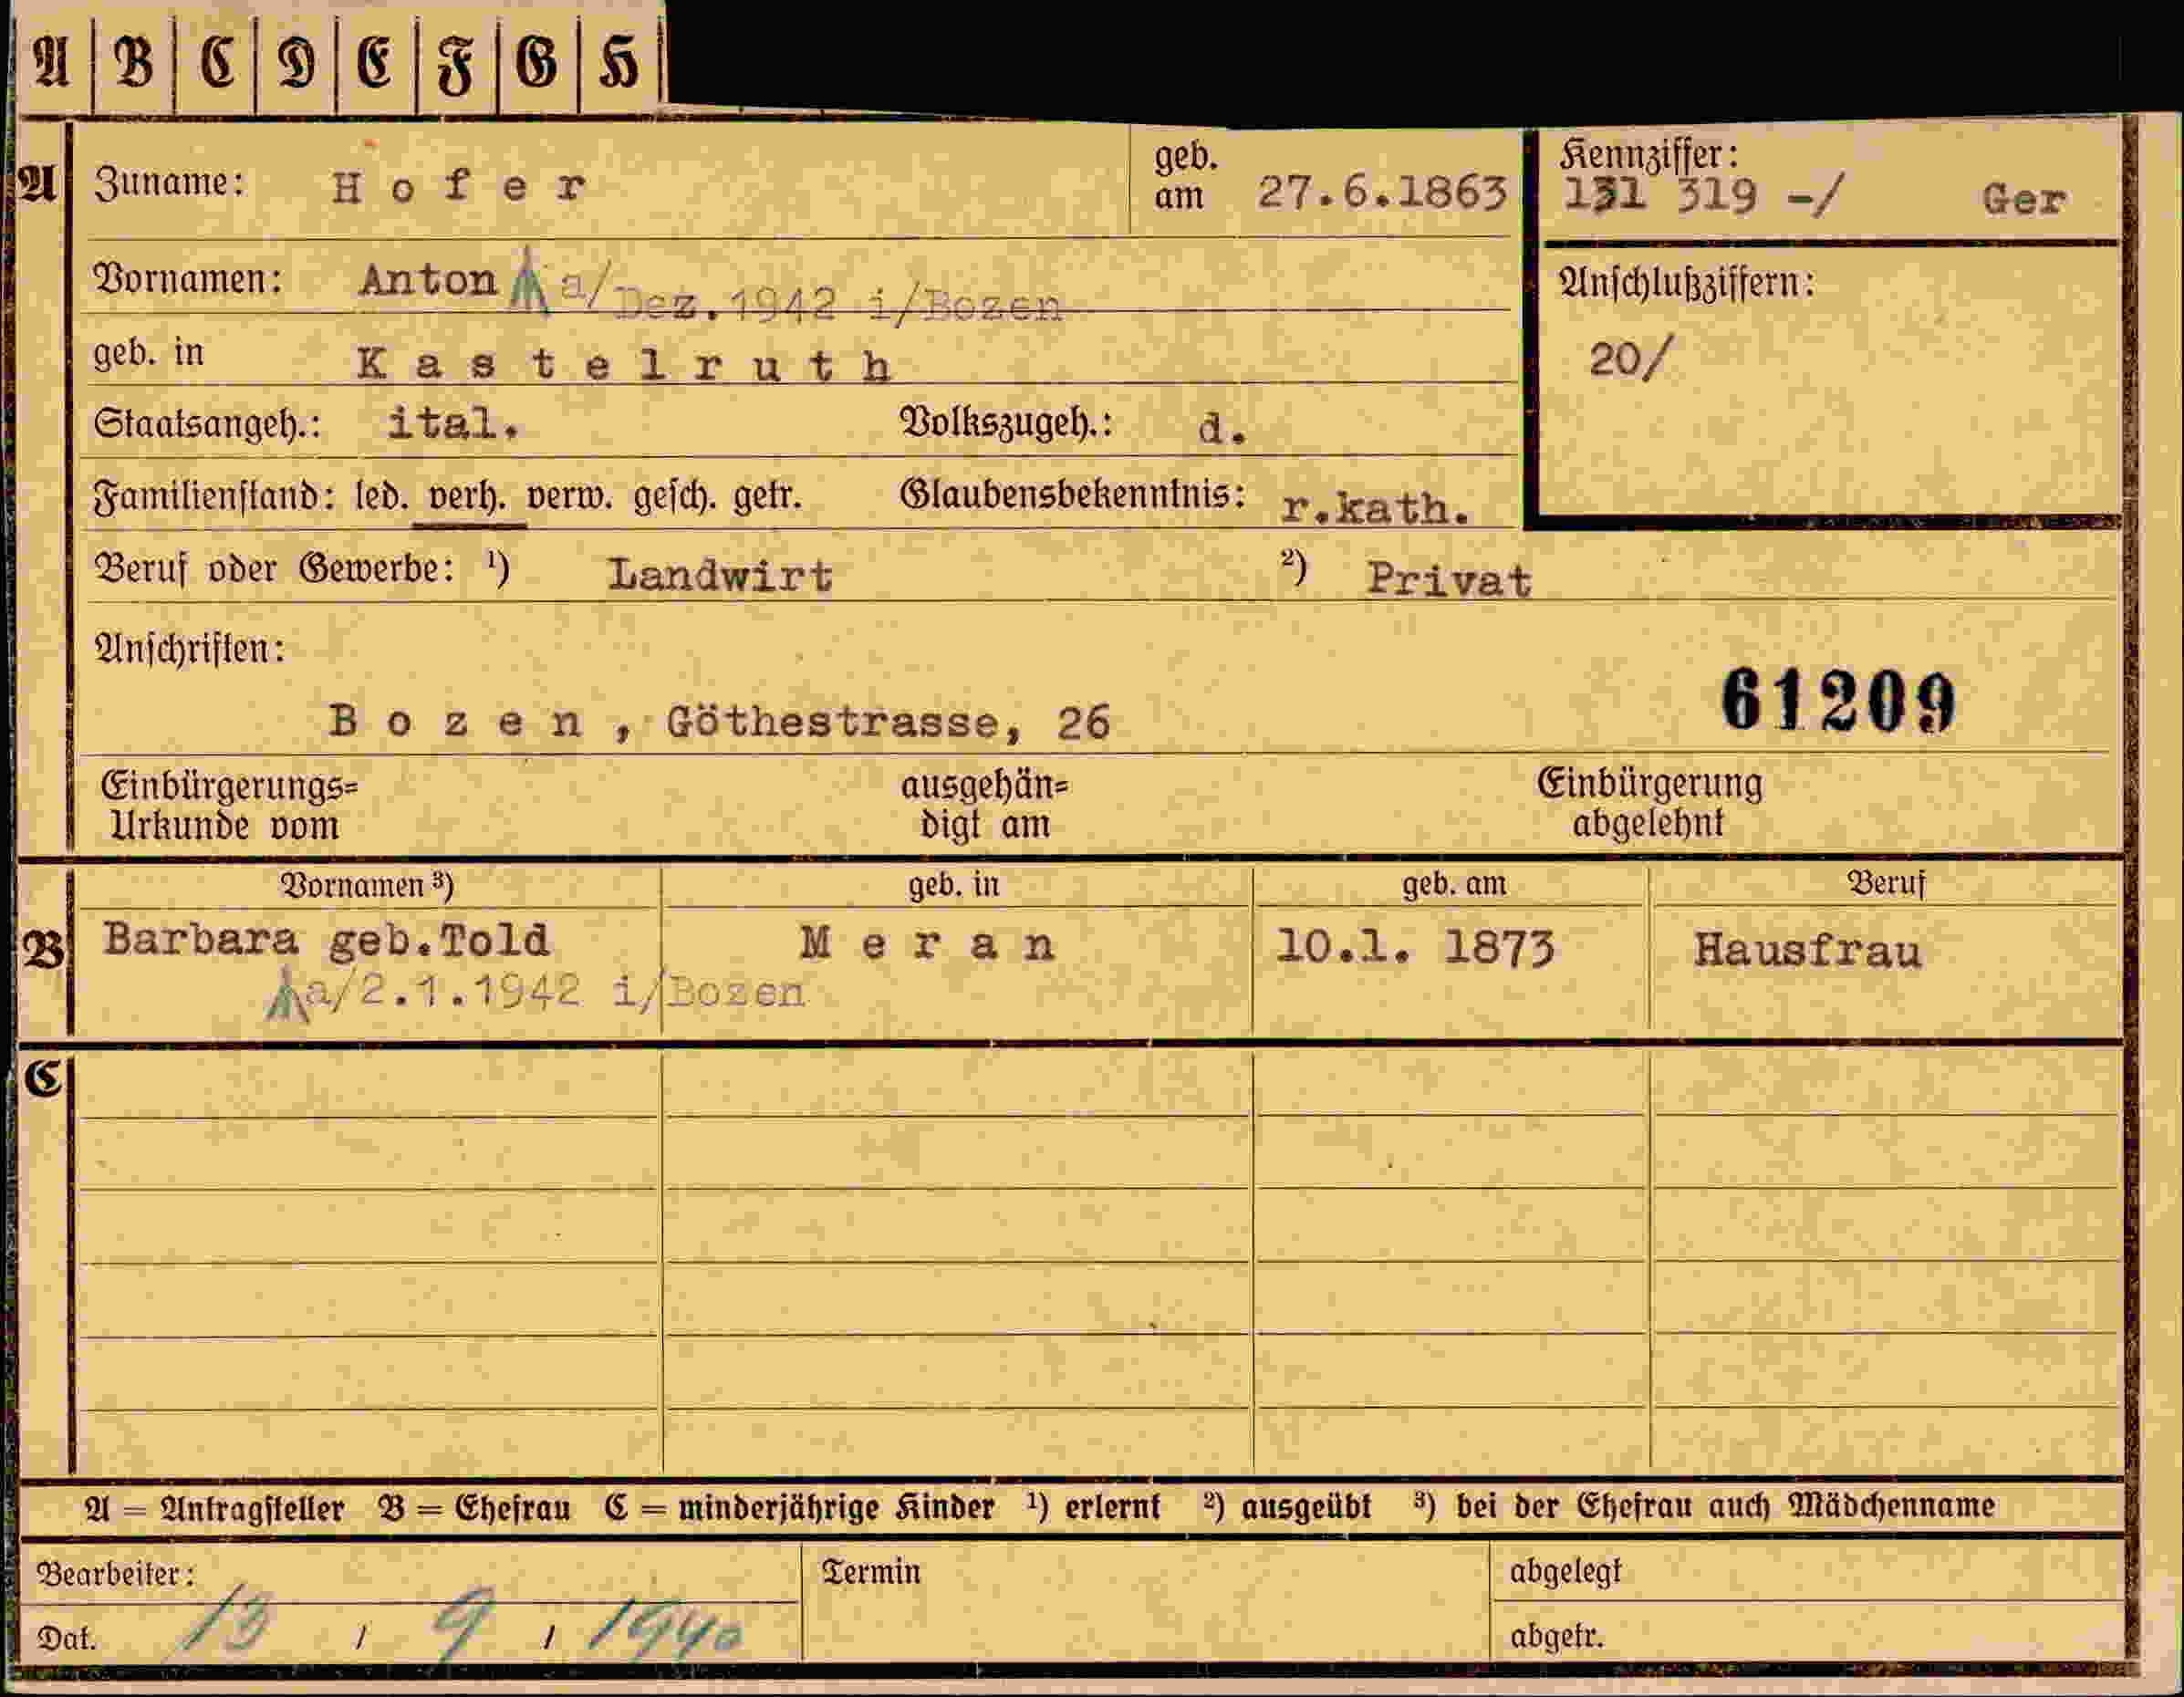 A B C D E F G H
A Zuname: Hofer geb. am 27.6.1863 Kennziffer: 131 319 -/ Ger
Vornamen: Anton a/Dez.1942 i/Bozen Anschlußziffern:
geb. in Kastelruth 20/
Staatsangeh.: ital. Volkszugeh.: d.
Familienstand: led. verh. verw. gesch. getr. Glaubensbekenntnis: r.kath.
Beruf oder Gewerbe: ¹) Landwirt ²) Privat
Anschriften:
Bozen, Göthestrasse, 26 61209
Einbürgerungs= ausgehän= Einbürgerung
Urkunde vom digt am abgelehnt
Vornamen ³) geb. in geb. am Beruf
B Barbara geb.Told Meran 10.1. 1873 Hausfrau
a/2.1.1942 i/Bozen
C
A = Antragsteller B = Ehefrau C = minderjährige Kinder ¹) erlernt ²) ausgeübt ³) bei der Ehefrau auch Mädchenname
Bearbeiter: Termin abgelegt
Dat. 13 / 9 / 1940 abgetr.